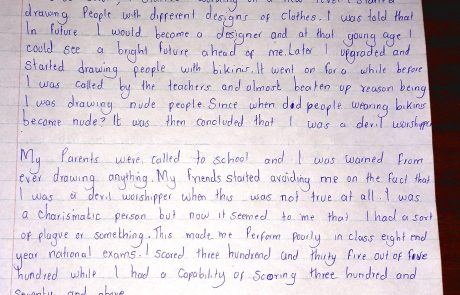 drawing People with different designs of clothes. I was told that
In future I would become a designer and at that young age I
could see a bright future ahead of me. Later I upgraded and
started drawing people with bikinis. It went on for a while before
I was called by the teachers and almost beaten up reason being
I was drawing nude people. Since when did people wearing bikinis
become nude? It was then concluded that I was a devil worshipper
My Parents were called to school and I was warned from
ever drawing anything. My friends started avoiding me on the fact that
I was a devil worshipper when this was not true at all. I was
a charismatic person but now it seemed to me that I had a sort
of plague or something. This made me Perform Poorly in class eight end
year national exams. I scored three hundrend and thirty five out of five
hundred while I had a capability of scoring three hundred and
seventy and above